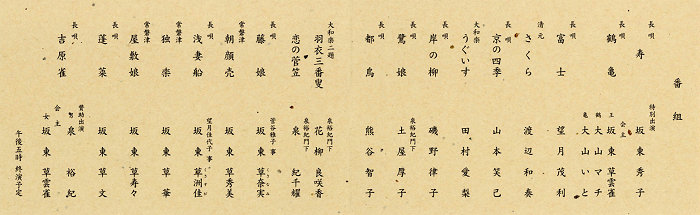 番組
長唄 寿 特別出演 坂東秀子
長唄 鶴亀 会主 王 坂東草雲雀
鶴 大山マチ
亀 大山いと
長唄 富士 望月茂利
清元 さくら 渡辺和奏
長唄 京の四季 山本笑己
大和楽 うぐいす 田村愛梨
長唄 岸の柳 磯野律子
長唄 鷺娘 泉裕紀門下 土屋厚子
長唄 都鳥 熊谷智子
大和楽二題
羽衣三番叟 泉裕紀門下 花柳良咲香
恋の菅笠 泉裕紀門下 泉紀千耀
長唄 藤娘 菅谷雅子事 坂東草奈実
長唄 朝顔売 坂東草秀美
長唄 浅妻船 望月佳代子事 坂東草洲佳
常磐津 独楽 坂東草華
常磐津 屋敷娘 坂東草寿々
長唄 蓬莱 坂東草文
長唄 吉原雀 賛助出演 男 泉裕紀
会主 女 坂東草雲雀
午後五時 終演予定